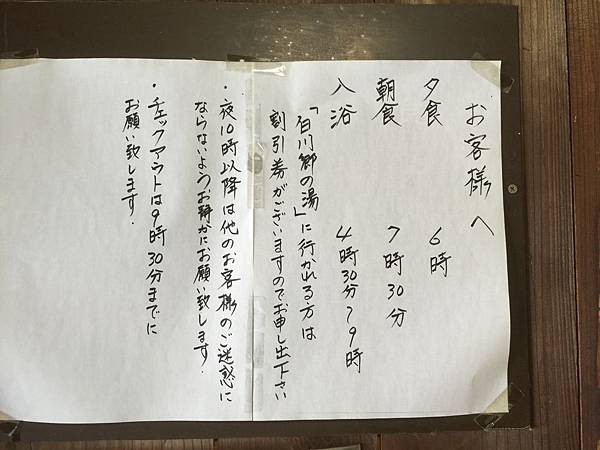 お客様へ
夕食 6時
朝食 7時30分
入浴 4時30分〜9時
「白川郷の湯」に行かれる方は
割引券がございますのでお申し出下さい
・夜10時以降は他のお客様のご迷惑に
ならないようお静かにお願い致します.
・チェックアウトは9時30分までに
お願い致します.